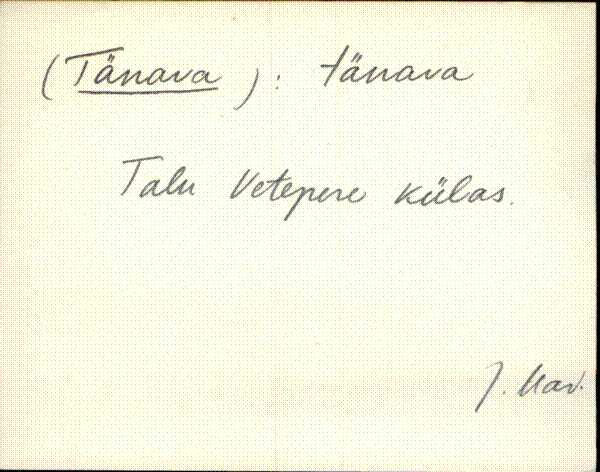 (Tänava): tänava
Talu Vetepere külas.
J. Mav.